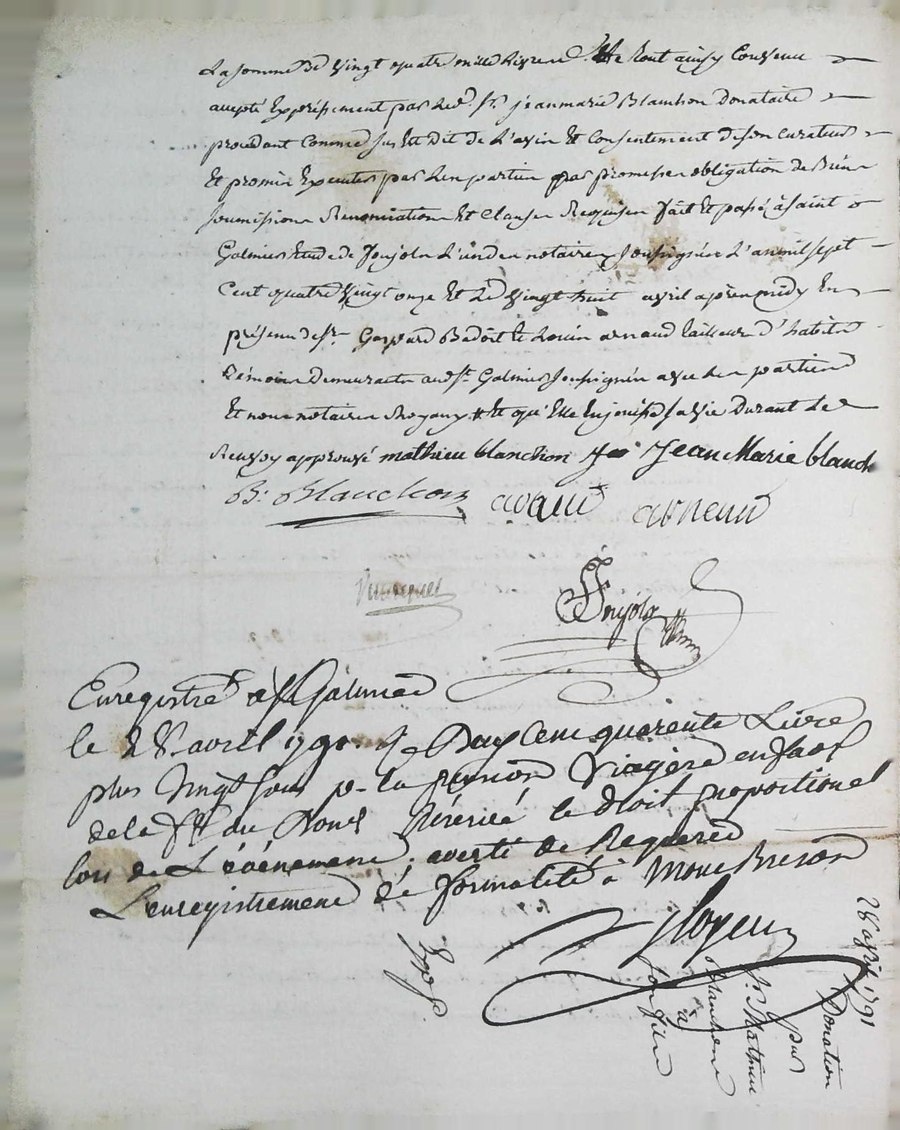 La somme de vingt quatre mille livres le tout ainsy convenu
accepté expressement par led. sr. jean marie Blanchon donataire
procedant comme sus est dit de l'avis et consentement de son curateur
et promis executer par les parties par promesses obligation de Biens
soumissions Renonciations et clauses Requises fait et passé à saint
Galmier Etude de Jonjolz l'un des notaires soussignés L'an mil sept
cent quatre vingt onze et Le vingt huit avril après midy En
présence de sr. Gaspard Badoit et Louis arnaud tailleur d'habits
témoins demeurants aud. st. Galmier soussignés avec les parties
Et nous notaires Royaux # et qu'Elle En jouisse sa vie durant Le
Renvoy approuvé mathieu blanchon Jean Marie blanch
B. Blanchon arnaud
Jonjolz
Enregistré à st Galmier
le 28 avril 1791. Reçu cent quarente Livre
plus vingt sous pr. la pension viagère en faveur
de la fe du Donet Réservé le droit proportionel
lors de L'événement, averti de Requerir
L'enregistrement de formalité à Montbrison
28 avril 1791
Donation
par
sr. Mathieu
Blanchon
à
son fils
Expe.